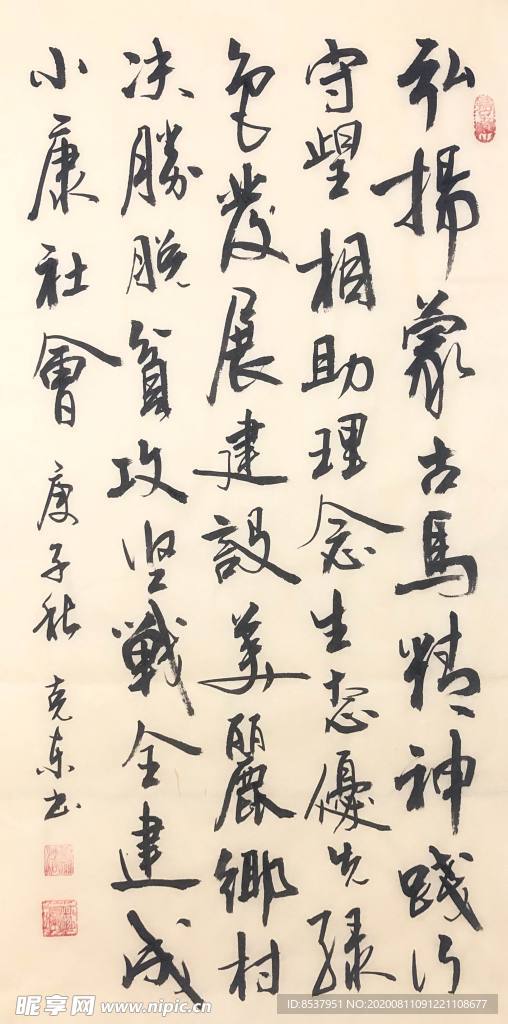 弘揚蒙古馬精神踐行
守望相助理念生态優先綠
色發展建設美麗鄉村
决勝脱貧攻坚戰全建成
小康社會 庚子秋 克東书
昵享网 www.nipic.cn
ID:8537951 NO:20200811091221108677